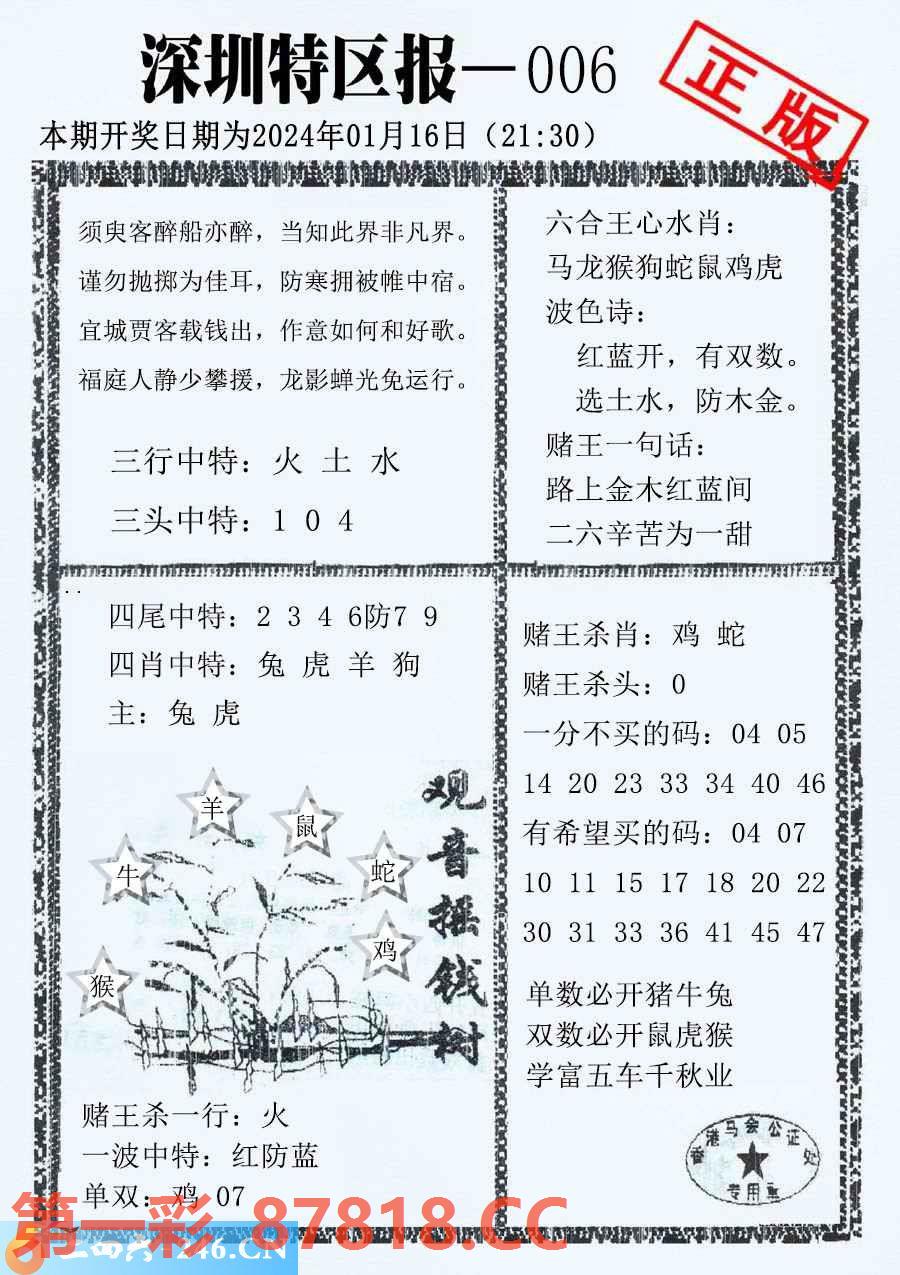 深圳特区报—006
正版
本期开奖日期为2024年01月16日（21:30）
须臾客醉船亦醉，当知此界非凡界。
谨勿抛掷为佳耳，防寒拥被帷中宿。
宜城贾客载钱出，作意如何和好歌。
福庭人静少攀援，龙影蝉光免运行。
三行中特：火 土 水
三头中特：1 0 4
六合王心水肖：
马龙猴狗蛇鼠鸡虎
波色诗：
红蓝开，有双数。
选土水，防木金。
赌王一句话：
路上金木红蓝间
二六辛苦为一甜
四尾中特：2 3 4 6防7 9
四肖中特：兔 虎 羊 狗
主：兔 虎
羊
鼠
牛
蛇
鸡
猴
观音摇钱树
赌王杀一行：火
一波中特：红防蓝
单双：鸡 07
赌王杀肖：鸡 蛇
赌王杀头：0
一分不买的码：04 05
14 20 23 33 34 40 46
有希望买的码：04 07
10 11 15 17 18 20 22
30 31 33 36 41 45 47
单数必开猪牛兔
双数必开鼠虎猴
学富五车千秋业
香港马会公证处
专用章
第一彩 87818.CC
246.CN